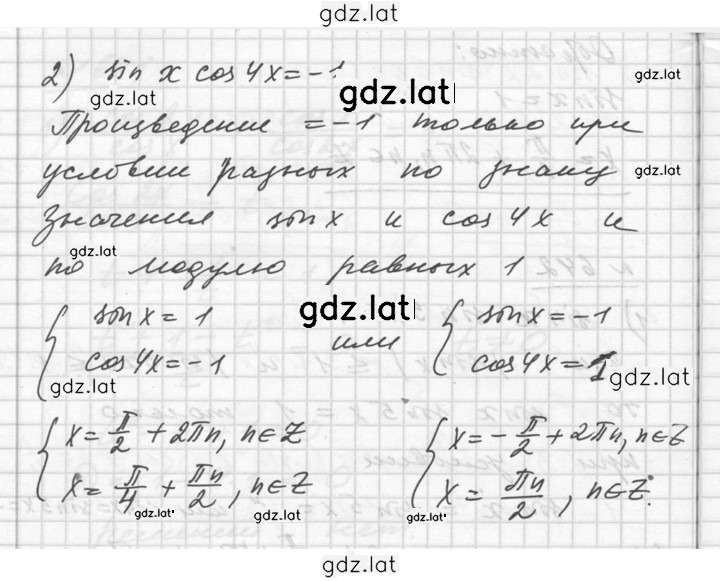 gdz.lat
2) sin x cos 4x = -1
gdz.lat gdz.lat gdz.lat
Произведение = -1 только при
условии разных по знаку gdz.lat
значения sin x и cos 4x и
gdz.lat
по модулю равных 1
{ sin x = 1 gdz.lat { sin x = -1
или
cos 4x = -1 cos 4x = 1
gdz.lat gdz.lat
{ x = π/2 + 2πn, n∈Z { x = -π/2 + 2πn, n∈Z
x = π/4 + πn/2, n∈Z x = πn/2, n∈Z.
gdz.lat gdz.lat gdz.lat
gdz.lat